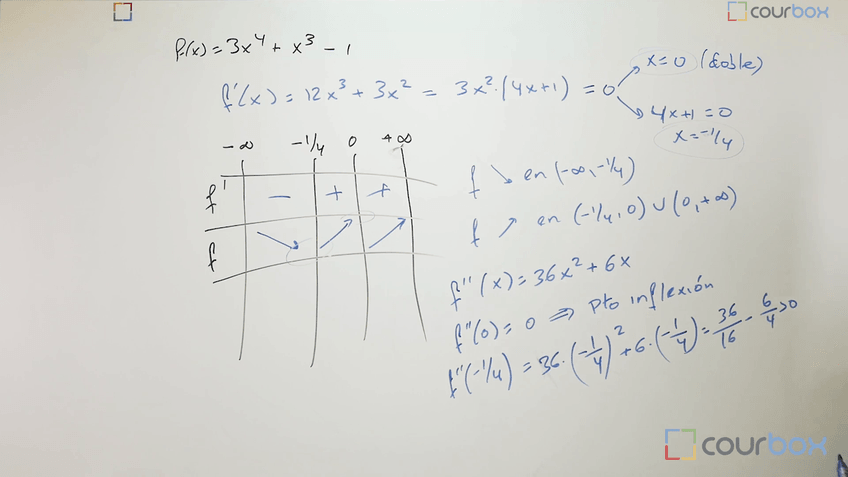 courbox
f(x) = 3x⁴ + x³ - 1
f'(x) = 12x³ + 3x² = 3x²·(4x+1) = 0
x=0 (doble)
4x+1=0
x=-1/4
-∞ -1/4 0 +∞
f' - + +
f ↘ ↗ ↗
f ↘ en (-∞, -1/4)
f ↗ en (-1/4, 0) ∪ (0, +∞)
f''(x) = 36x² + 6x
f''(0) = 0 ⇒ Pto inflexión
f''(-1/4) = 36·(-1/4)² + 6·(-1/4) = 36/16 - 6/4 > 0
courbox